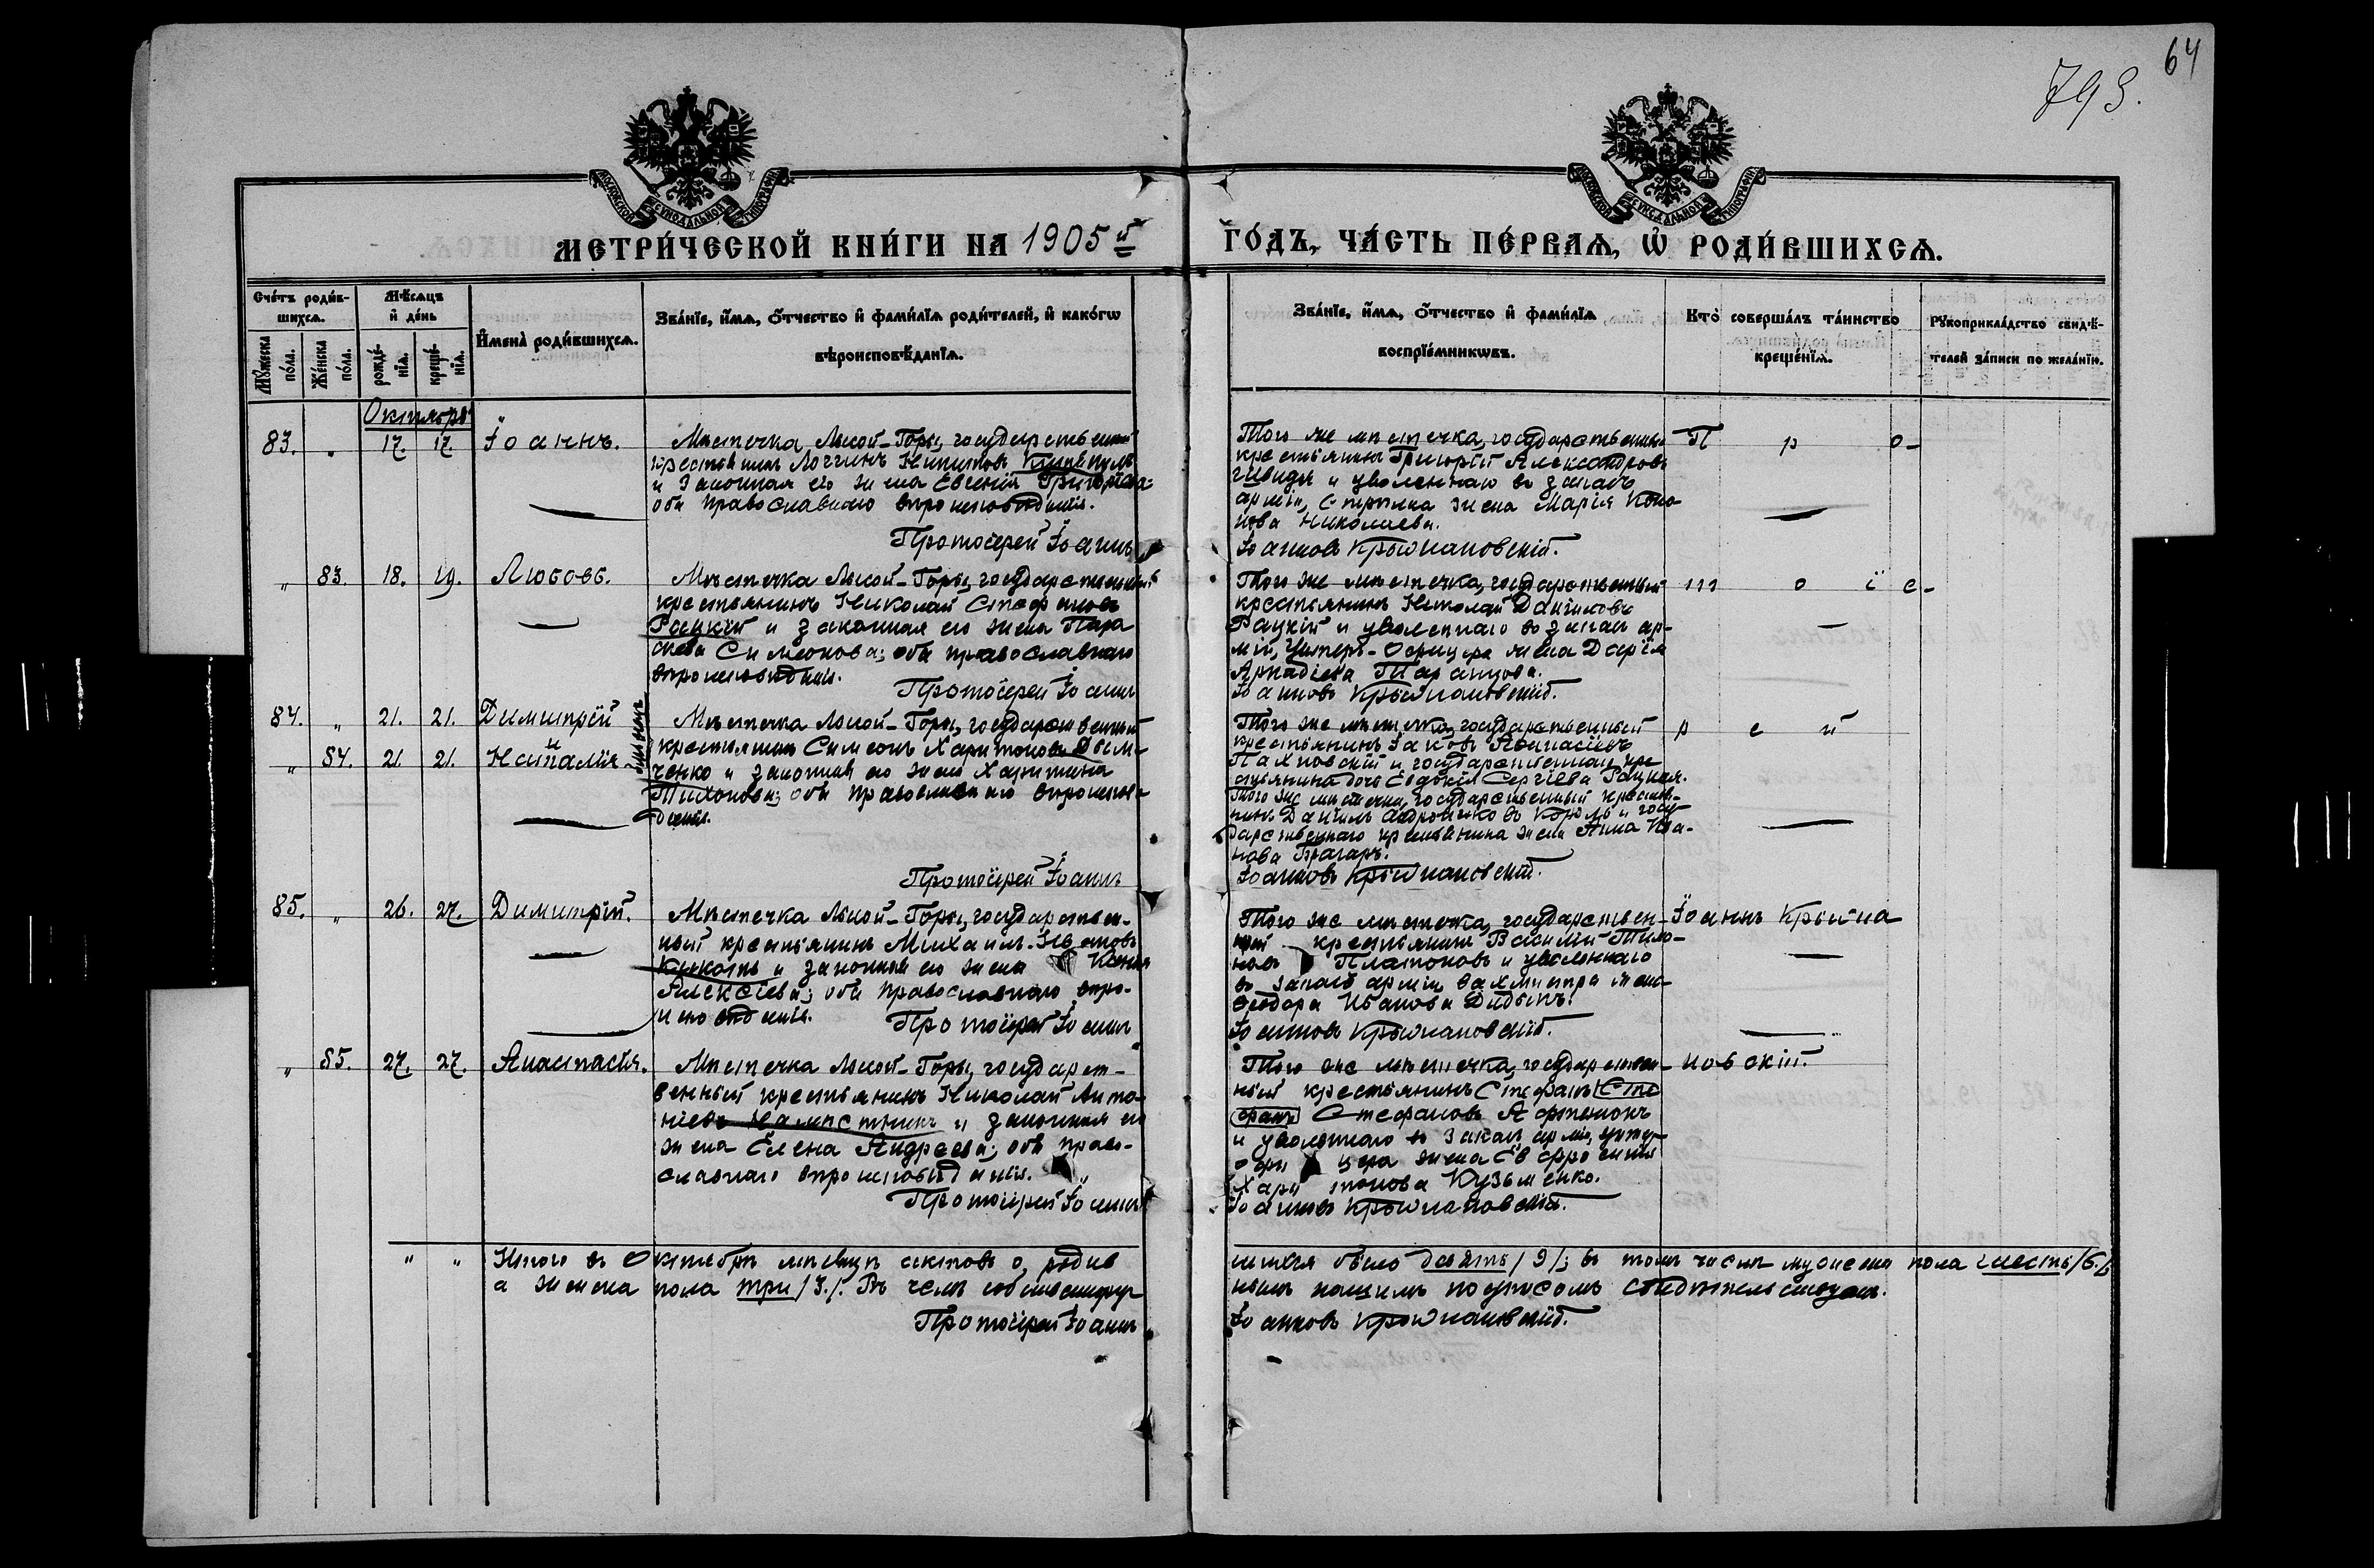 64
793.
МОСКОВСКОЙ СУНОДАЛЬНОЙ ТИПОГРАФІИ
МОСКОВСКОЙ СУНОДАЛЬНОЙ ТИПОГРАФІИ
МЕТРИ́ЧЕСКОЙ КНИ́ГИ НА 1905 й
ГО́ДЪ, ЧА́СТЬ ПЕ́РВАѦ, Ѡ҆ РОДИ́ВШИХСѦ.
Сче́тъ роди́в-
шихсѧ.
Мꙋ́жеска по́ла.
Же́нска по́ла.
Мѣ́сѧцъ
и҆ де́нь
рожде́-
нїѧ.
креще́-
нїѧ.
И҆мена̀ роди́вшихсѧ.
Зва́нїе, и҆́мѧ, ѻ҆́тчество и҆ фами́лїѧ роди́телей, и҆ како́гѡ
вѣроисповѣ́данїѧ.
Зва́нїе, и҆́мѧ, ѻ҆́тчество и҆ фами́лїѧ
воспрїе́мникѡвъ.
Кто̀ соверша́лъ та́инство
креще́нїѧ.
Рꙋкоприкла́дство свидѣ́-
телей за́писи по жела́нїю.
Октябрь
83. „ 17. 17. Іоаннъ.
Мѣстечка Лысой-Горы, государственный
крестьянинъ Логгинъ
и законная его жена Евгенія Григоріева;
оба православнаго вѣроисповѣданія.
Протоіерей Іоаннъ
Того же мѣстечка, государственный
крестьянинъ Григорій Александровъ
и уволеннаго въ запасъ
арміи, стрѣлка жена Марія
Николаева.
Іоанновъ Крыжановскій.
П р о-
„ 83. 18. 19. Любовь.
Мѣстечка Лысой-Горы, государственный
крестьянинъ Николай Стефановъ
Рацкій и законная его жена Пара
скева Симеонова; оба православнаго
вѣроисповѣданія.
Протоіерей Іоаннъ
Того же мѣстечка, государственный
крестьянинъ Николай Даніиловъ
Рацкій и уволеннаго въ запасъ ар-
міи, Унтеръ-Офицера жена Дарія
Аркадіева
Іоанновъ Крыжановскій.
т о ї е-
84. „ 21. 21. Димитрій
„ 84. 21. 21. Наталія
близнецы
Мѣстечка Лысой-Горы, государственный
крестьянинъ Симеонъ Харитоновъ
ченко и законная его жена Харитина
Тихонова; оба православнаго вѣроисповѣ-
данія.
Протоіерей Іоаннъ
Того же мѣстечка, государственный
крестьянинъ Іаковъ Аѳанасіевъ
Пахновскій и государственнаго кре
стьянина дочь Евдокія Сергіева Рацкая.
Того же мѣстечка, государственный крестья-
нинъ Даніилъ Андрониковъ Король и госу-
дарственнаго крестьянина жена Анна Ива-
нова
Іоанновъ Крыжановскій.
р е й
85. „ 26. 27. Димитрій.
Мѣстечка Лысой-Горы, государствен-
ный крестьянинъ Михаилъ Ивановъ
Кикоть и законная его жена Ксенія
Алексіева; оба православнаго вѣро-
исповѣданія.
Протоіерей Іоаннъ
Того же мѣстечка, государствен-
ный крестьянинъ Василій
Платоновъ и уволеннаго
въ запасъ арміи вахмистра жена
Ѳеодора Иванова
Іоанновъ Крыжановскій.
Іоаннъ Крыжа
„ 85. 27. 27. Анастасія.
Мѣстечка Лысой-Горы, государст-
венный крестьянинъ Николай Анто-
ніевъ Намѣстникъ и законная его
жена Елена Андреева; оба право-
славнаго вѣроисповѣданія.
Протоіерей Іоаннъ
Того же мѣстечка, государствен-
ный крестьянинъ Стефанъ (Сте
фанъ) Стефановъ
и уволеннаго въ запасъ арміи, унтер-
офицера жена Евфросинія
Харитонова Кузьменко.
Іоанновъ Крыжановскій.
новскій.
„ „ Итого въ Октябрѣ мѣсяцѣ актовъ о родив
шихся было девять /9/; въ томъ числѣ мужеска пола шесть /6./,
а женска пола три /3./. Въ чемъ собственноруч
нымъ нашимъ подписомъ свидѣтельствуемъ.
Протоіерей Іоаннъ
Іоанновъ Крыжановскій.